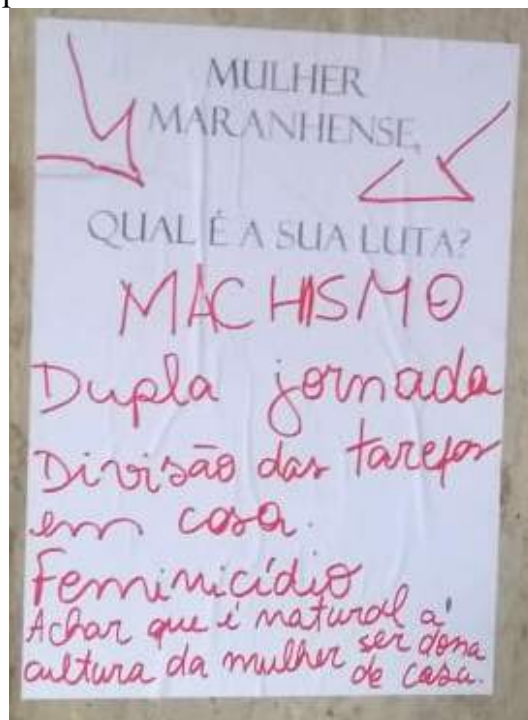 MULHER
MARANHENSE,
QUAL É A SUA LUTA?
MACHISMO
Dupla jornada
Divisão das tarefas
em casa.
Feminicídio
Achar que é natural a
cultura da mulher ser dona
de casa.